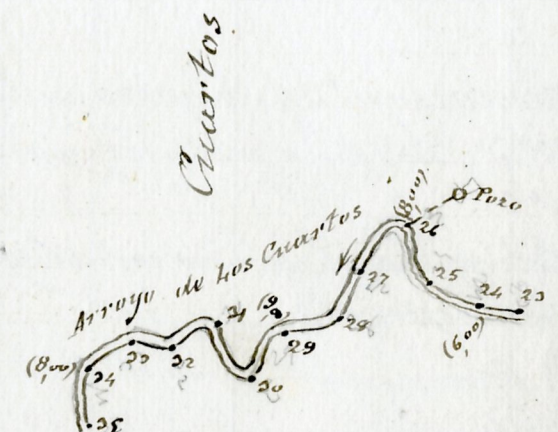 Cuartos
Arroyo de Los Cuartos
Pozo
(8,00)
26
27
25
24
23
(6,00)
28
29
30
31
32
33
34
(8,00)
35